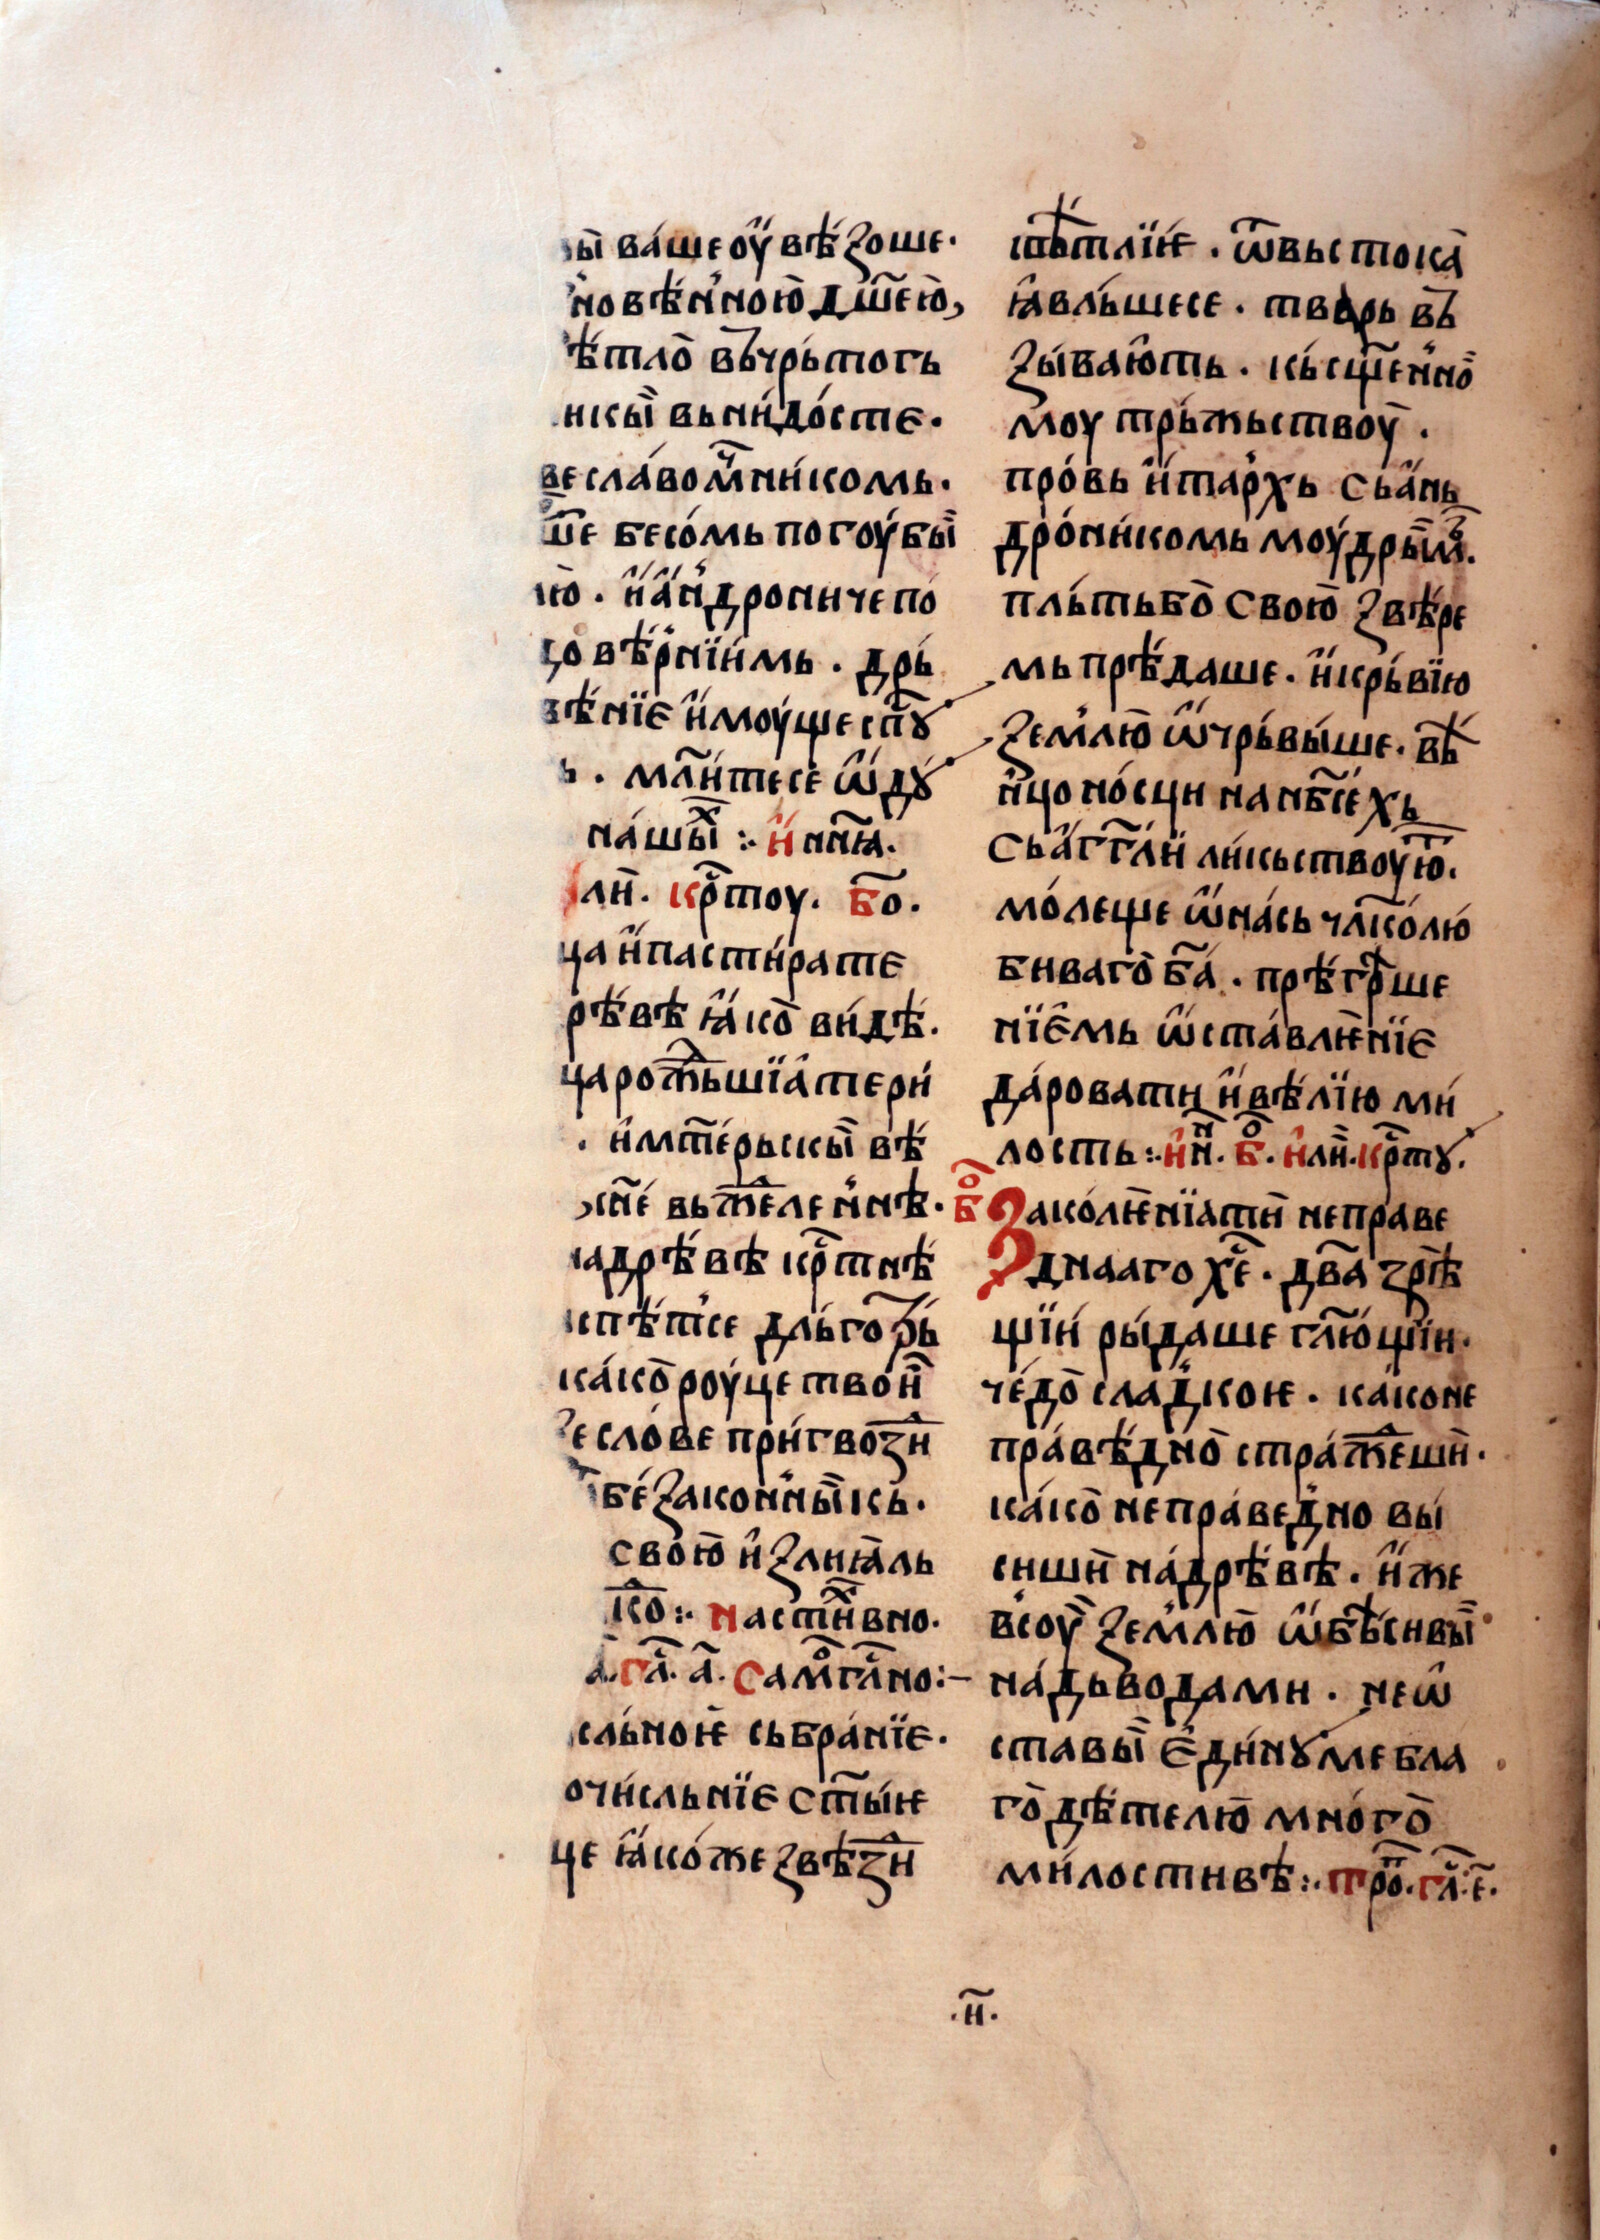 ы̏ ва́ше оу̓̀вѣ́ꙁоше ·
новѣ́н̓ною̀ дш҃ею̀,
ѣ́тлѡ̀ въчрь́тогь
нскы̏ вьни́до́сте ·
ве сла́во мч҃ни́комь ·
ше бесо́мь погоу́бы̏
ю̀ · и̓́ а̓́н̓дрониче по
цо вѣ́р̓нїи́мь · дрь́
вѣ́нїе и̓́моу́ще сп҃ꙋ
ь · мл҃и́тесе ѡ̓́ дꙋ
на́шы̏х :· и̓́ нн҃ꙗ ·
ли̏ · кр҃тоу · бо҃ ·
ца и̓́ пасти́ра те
рѣ́вѣ ꙗ̓́ко̀ ви́дѣ ·
ца рожⷣьшїа̓̀ те ри́
· и̓ мт҃е́рьскы̏ вѣ́
сн҃е́ вьжⷣеле́н̓нѣ ·
на дрѣ́вѣ кр҃тнѣ́
спѣ́т̓се дль́готрь́
ка́ко̀ роу́це твои̏
е сло́ве при́гвозⷣи
беꙁакон̓ны̏ кь ·
свою̀ и̓ꙁлиꙗ́ль
ко :· на стⷯи́вно ·
а҃ · гл҃ · а҃ · самогл҃но :–
сль́ноѥ̀ сьбра́нїе ·
очи́сльнїе ст҃ы́ѥ
це ꙗ̓́ко́же ꙁвѣ́зⷣи
свѣ́тлїѥ̀ · ѿ вьстока̀
ꙗ̓вль́шесе · тварь въ
ꙁы́ваю̓̀ть · кь сщ҃ен̓но̏
моу трь́жьствоу̀ ·
про́вь и̓́ тар̓хь сь а̓́нь
дро́ни́комь моу́дры̏м ·
пль́ть бо̀ свою̀ ꙁвѣ́ре
мь прѣ́даше · и̓́ крь́вїю
ꙁем̓лю̀ ѡ̓́чрь́вы́ше · вѣ́
н̓цо но́сци на нб҃се́хь
сь а̓́гг҃ли̏ ли́кьствоую҃т ·
мо́леще ѡ̓́ на́сь чл҃ко́лю́
биваго̀ б҃а́ · прѣ́грⷣ҇ше
нїе̓̀мь ѡ̓́ста́влѥ̀нїе
да́ровати и̓́ вѣ́лїю ми́
лость :· и̓ нн҃ · бо҃ · и̓ ли̏ · кр҃тꙋ ·
бо҃ Заколѥ̀нїа ти̏ неправе
днааго х҃е · дв҃а зр҃ѣ́
щїи́ ры́даше гл҃ю́щїи ·
че́до̀ слад̓коѥ · ка́ко не
пра́вѣ́д̓но̀ стра́жⷣеши̏ ·
ка́ко̀ непра́вед̓но вы́
сиши̏ на́ дрѣ́вѣ · и̓́же
в̓соу̏ ꙁем̓лю̀ ѡ̓́бѣ́сивы̏
на́дь водами · не ѡ̓̀
ставы̏ е̓̀ди́нꙋ ме бла
го̀дѣ́телю̀ мно́го̀
ми́лостивѣ :· тро҃п · гл҃ · е҃ ·
· и҃ ·